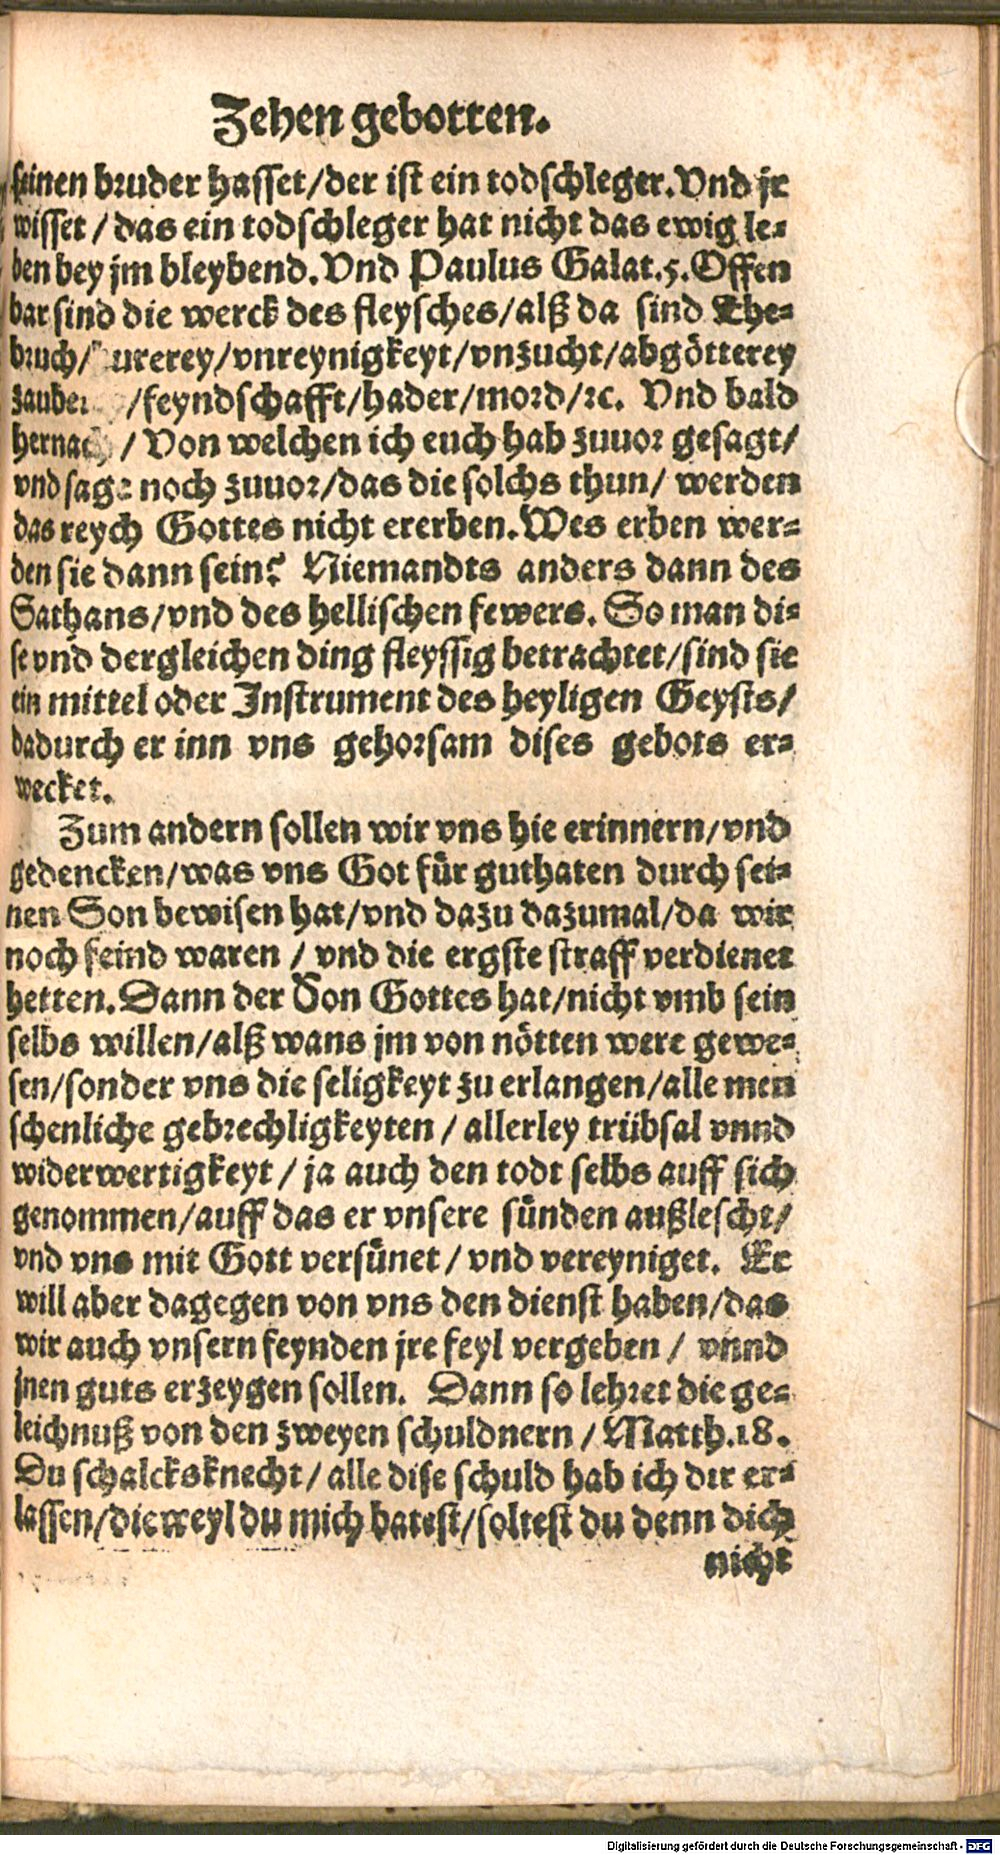 Zehen gebotten.
seinen bruder hasset/der ist ein todschleger. Vnd jr
wisset / das ein todschleger hat nicht das ewig le⸗
ben bey jm bleybend. Vnd Paulus Galat.5. Offen
bar sind die werck des fleysches/alß da sind Ehe⸗
bruch/ urerey/vnreynigkeyt/vnzucht/abgötterey
/feyndschafft/hader/mord/ꝛc. Vnd bald
hernach / Von welchen ich euch hab zuuor gesagt/
vnd sage noch zuuor/das die solchs thun/ werden
das reych Gottes nicht ererben. Wes erben wer⸗
den sie dann sein? Niemandts anders dann des
Sathans/vnd des hellischen fewers. So man di⸗
se vnd dergleichen ding fleyssig betrachtet/sind sie
ein mittel oder Instrument des heyligen Geysts/
dadurch er inn vns gehorsam dises gebots er⸗
wecket.
Zum andern sollen wir vns hie erinnern/vnd
gedencken/was vns Got für guthaten durch sei⸗
nen Son bewisen hat/vnd dazu dazumal/da wir
noch feind waren / vnd die ergste straff verdienet
hetten. Dann der Son Gottes hat/nicht vmb sein
selbs willen/alß wans jm von nötten were gewe⸗
sen/sonder vns die seligkeyt zu erlangen/alle men
schenliche gebrechligkeyten / allerley trübsal vnnd
widerwertigkeyt / ja auch den todt selbs auff sich
genommen/auff das er vnsere sünden außlescht/
vnd vns mit Gott versünet / vnd vereyniget. Er
will aber dagegen von vns den dienst haben/das
wir auch vnsern feynden jre feyl vergeben / vnnd
jnen guts erzeygen sollen. Dann so lehret die ge⸗
leichnuß von den zweyen schuldnern / Matth.18.
Du schalcksknecht/ alle dise schuld hab ich dir er⸗
lassen/dieweyl du mich batest/soltest du denn dich
nicht
Digitalisierung gefördert durch die Deutsche Forschungsgemeinschaft - DFG